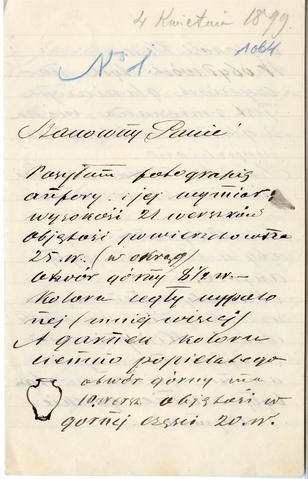 4 Kwietnia 1899.
1064
No 1.
Szanowny Panie!
Posyłam fotografię
amfory i jej wymiar:
wysokość 21 werszków
objętość powierzchowna
25. w. (w okręg)
otwór górny 8 1/2 w.
Koloru cegły wypalo
nej (mniej więcej)
A garnek koloru
ciemno popielatego
otwór górny ma
10. wersz. objętość w
górnej części 20. w.